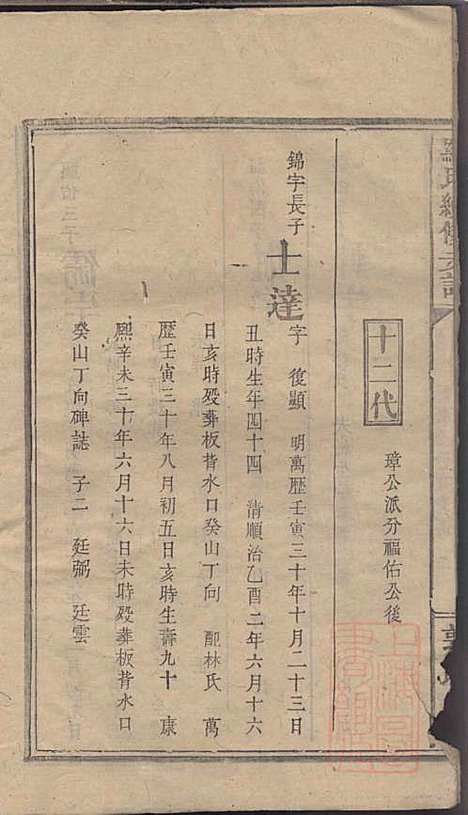 氏續修支譜
十二代
璋公派分福佑公後
錦字長子
士達
字 復顯 明萬歷壬寅三十年十月二十三日
丑時生年四十四 清順治乙酉二年六月十六
日亥時殁葬板背水口癸山丁向 配林氏 萬
歷壬寅三十年八月初五日亥時生壽九十 康
熙辛未三十年六月十六日未時殁葬板背水口
癸山丁向碑誌 子二 廷弼 廷雲